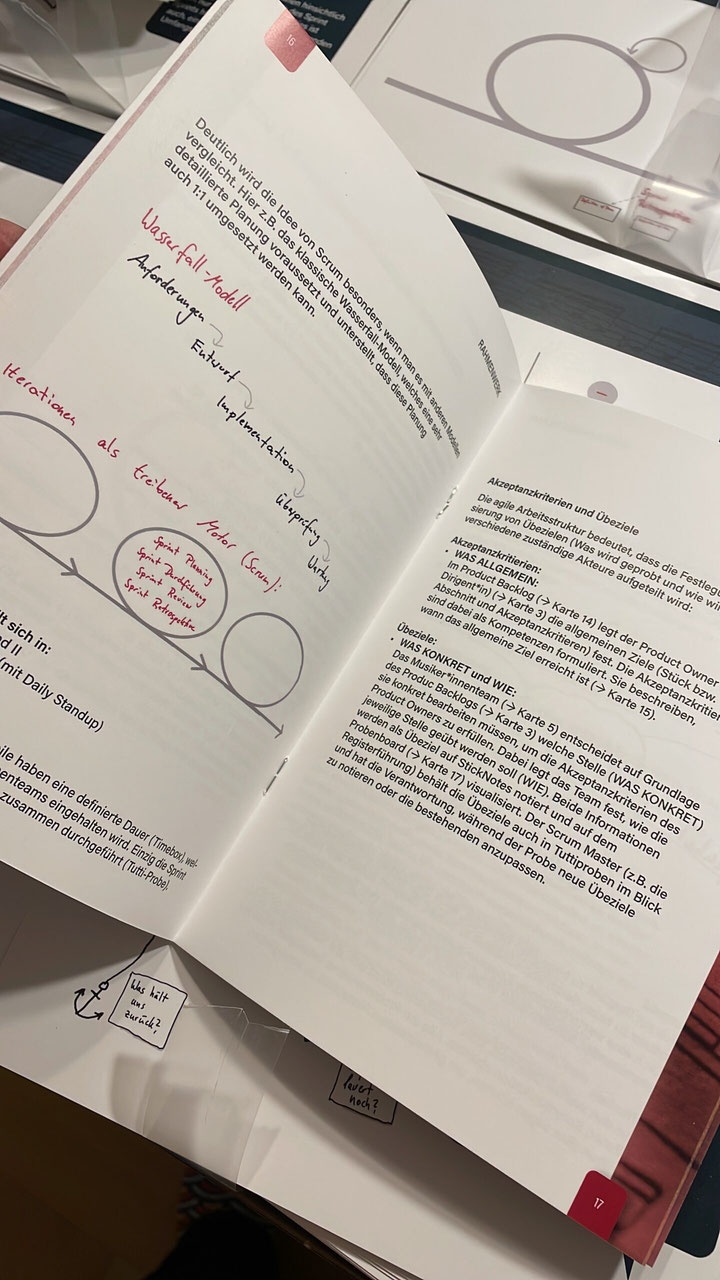 16
Deutlich wird die Idee von Scrum besonders, wenn man es mit anderen Modellen
vergleicht. Hier z.B. das klassische Wasserfall-Modell, welches eine sehr
detaillierte Planung voraussetzt und unterstellt, dass diese Planung
auch 1:1 umgesetzt werden kann.
RAHMENWERK
Wasserfall-Modell
Anforderungen
Entwurf
Implementation
Überprüfung
Wartung
Iterationen als treibener Motor (Scrum):
Sprint Planning
Sprint Durchführung
Sprint Review
Sprint Retrospektive
lt sich in:
d II
(mit Daily Standup)
ile haben eine definierte Dauer (Timebox), wel-
enteams eingehalten wird. Einzig die Sprint
zusammen durchgeführt (Tutti-Probe).
Akzeptanzkriterien und Übeziele
Die agile Arbeitsstruktur bedeutet, dass die Festlegu
sierung von Übezielen (Was wird geprobt und wie wi
verschiedene zuständige Akteure aufgeteilt wird:
Akzeptanzkritierien:
• WAS ALLGEMEIN:
Im Product Backlog (→ Karte 14) legt der Product Owner
Dirigent*in) (→ Karte 3) die allgemeinen Ziele (Stück bzw.
Abschnitt und Akzeptanzkriterien) fest. Die Akzeptanzkriterie
sind dabei als Kompetenzen formuliert. Sie beschreiben,
wann das allgemeine Ziel erreicht ist (→ Karte 15).
Übeziele:
• WAS KONKRET und WIE:
Das Musiker*innenteam (→ Karte 5) entscheidet auf Grundlage
des Produc Backlogs (→ Karte 3) welche Stelle (WAS KONKRET)
sie konkret bearbeiten müssen, um die Akzeptanzkriterien des
Product Owners zu erfüllen. Dabei legt das Team fest, wie die
jeweilige Stelle geübt werden soll (WIE). Beide Informationen
werden als Übeziel auf StickNotes notiert und auf dem
Probenboard (→ Karte 17) visualisiert. Der Scrum Master (z.B. die
Registerführung) behält die Übeziele auch in Tuttiproben im Blick
und hat die Verantwortung, während der Probe neue Übeziele
zu notieren oder die bestehenden anzupassen.
17
Was hält
uns
zurück?
lauert
noch?